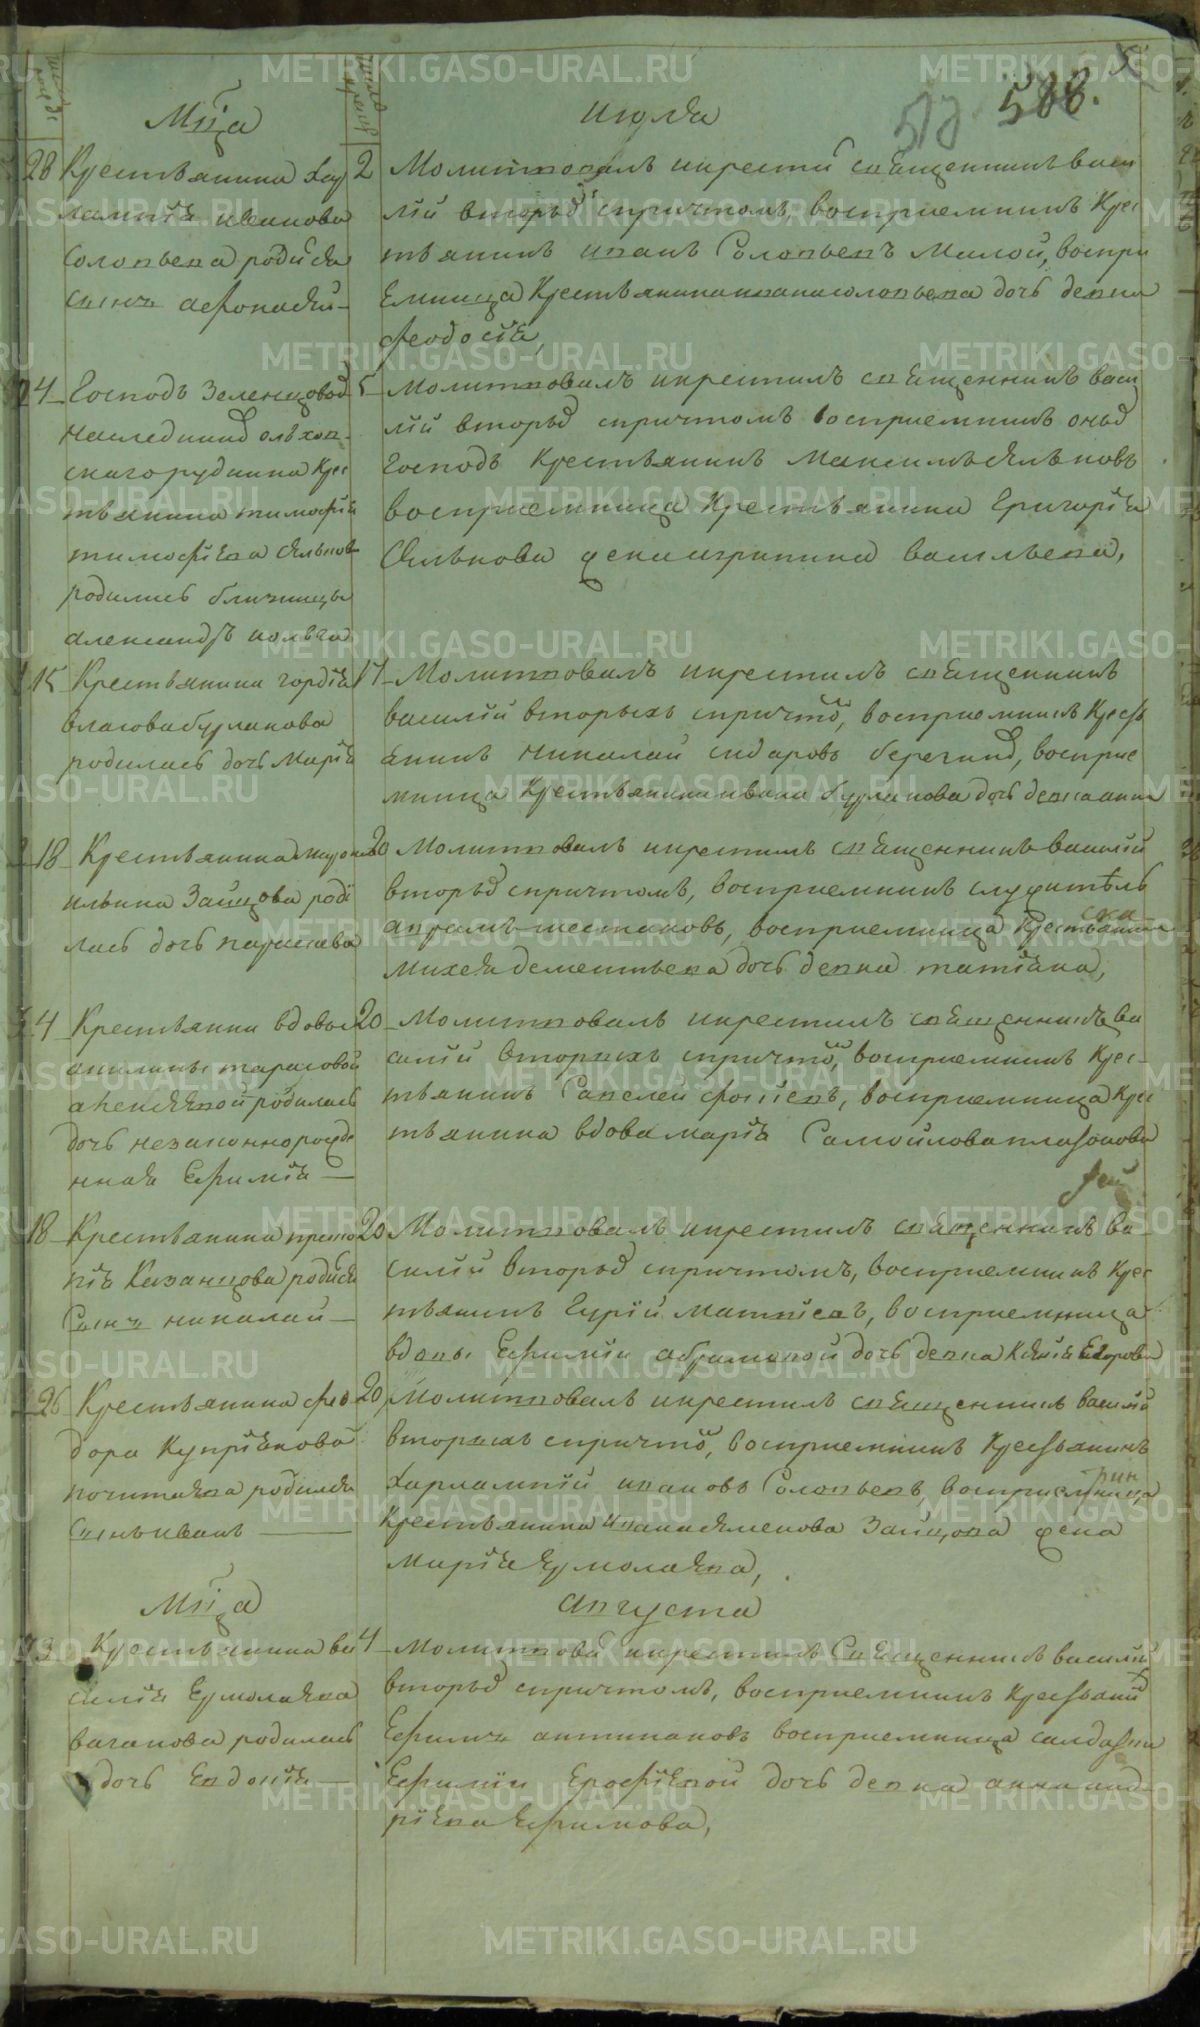 METRIKI.GASO-URAL.RU
588.
Мца Июля
28 Крестьянина Хар
лампія иванова
Соловьева родися
сынъ афонасїй
2 Молитвовалъ икрести священникъ васи
лїй вторыхъ спричтомъ, восприемникъ Крес
тьянинъ иванъ Соловьевъ Малой, воспри
Емница Крестьянина ивана соловьева дочь девка
феодосїя,
4 Господъ Зеленцовой
наследниковъ
скаго рудника Крес
тьянина тимофїя
тимофїева
родились близницы
александръ
5 молитвовалъ икрестилъ священникъ васи
лїй вторыхъ спричтомъ восприемникъ оныхъ
Господъ Крестьянинъ Максимъ
восприемница Крестьянина Григорїя
жена васильева,
15 Крестьянина гордѣя
власова бурланова
родилась дочь Марїя
17 Молитвовалъ икрестилъ священникъ
василїй вторыхъ спричтомъ, восприемникъ Кресть
янинъ Николай сидаровъ восприе
мница Крестьянина ивана бурланова дочь девка анна
18 Крестьянина
ильина Зайцова роди
лась дочь парасковья
20 Молитвовалъ икрестилъ священникъ василїй
вторыхъ спричтомъ, восприемникъ служитель
аврамъ шестаковъ, восприемница Крестьянина
Михея дементьева дочь девка татїана,
4 Крестьянки вдовы
акилины тарасовой
родилась
дочь незаконнорожде
нная Ефимїя
20 Молитвовалъ икрестилъ священникъ ва
силїй вторыхъ спричтомъ, восприемникъ Крес
тьянинъ Савелей восприемница Крес
тьянина вдова марїя Самойлова платонова
18 Крестьянина
Казанцова родися
Сынъ николай
20 Молитвовалъ икрестилъ священникъ ва
силїй вторыхъ спричтомъ, восприемникъ Крес
тьянинъ Гурїй Матвїевъ, восприемница
вдовы Ефимїи абрамовой дочь девка Егорова
26 Крестьянина фео
дора Купрїянова
родился
Сынъ иванъ
20 Молитвовалъ икрестилъ священникъ василїй
вторыхъ спричтомъ, восприемникъ Крестьянинъ
Харлампїй ивановъ Соловьевъ, восприемница
Крестьянина Ивана семенова Зайцова жена
Марїя Ермолаева,
Мца августа
3 Крестьянина ва
силїя Ермолаева
ваганова родилась
дочь Евдокїя
4 Молитвова икрестилъ Священникъ василїй
вторыхъ спричтомъ, восприемникъ Крестьянинъ
Ефимъ антипановъ восприемница салдатки
Ефимїи Ерофїевой дочь девка анна анд
рїева Ефимова,